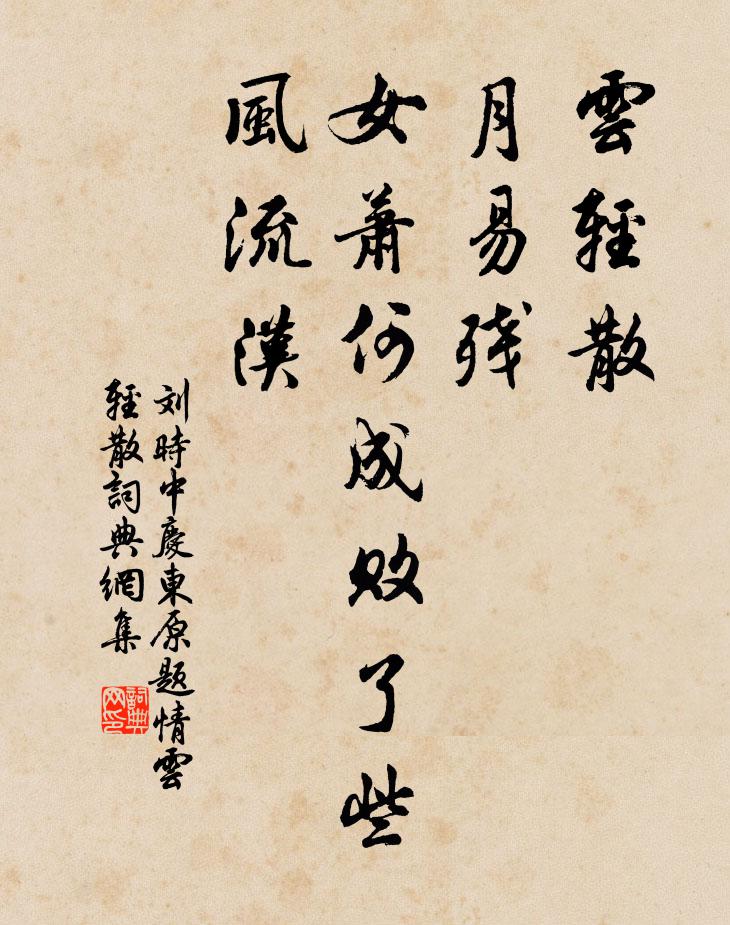 雲輕散
月易残
女蕭何成敗了些
風流漢
刘時中慶東原題情雲
輕散詞典網集
詞典
网印